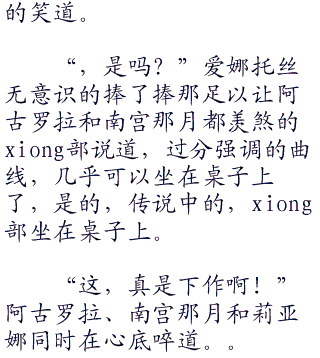 的笑道。
“，是吗？”爱娜托丝
无意识的捧了捧那足以让阿
古罗拉和南宫那月都羡煞的
xiong部说道，过分强调的曲
线，几乎可以坐在桌子上
了，是的，传说中的，xiong
部坐在桌子上。
“这，真是下作啊！”
阿古罗拉、南宫那月和莉亚
娜同时在心底啐道。。